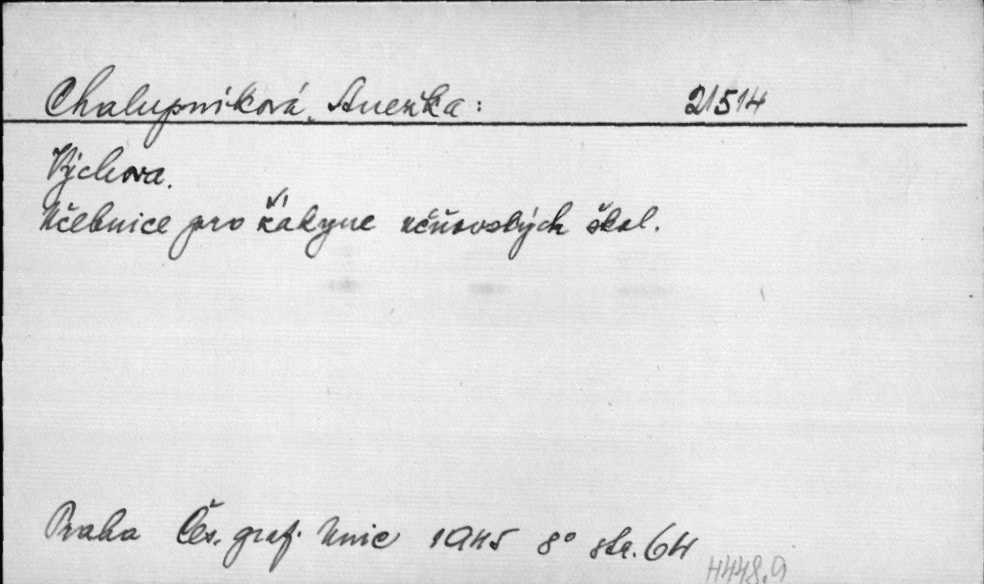 Chalupníková, Anežka: 21514
Výchova.
Učebnice pro žákyne učňovských škol.
Praha Čes. graf. Unie 1945 8° str. 64
H448,9